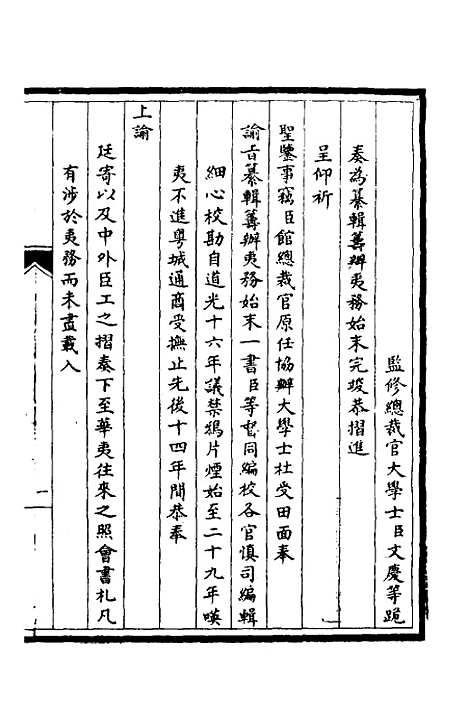 監修總裁官大學士臣文慶等跪
奏為纂輯籌辦夷務始末完竣恭摺進
呈仰祈
聖鑒事竊臣館總裁官原任協辦大學士杜受田面奉
諭旨纂輯籌辦夷務始末一書臣等督同編校各官慎司編輯
細心校勘自道光十六年議禁鴉片煙始至二十九年𠸄
夷不進粵城通商受撫止先後十四年間恭奉
上諭
廷寄以及中外臣工之摺奏下至華夷往來之照會書札凡
有涉於夷務而未盡載入
二
一